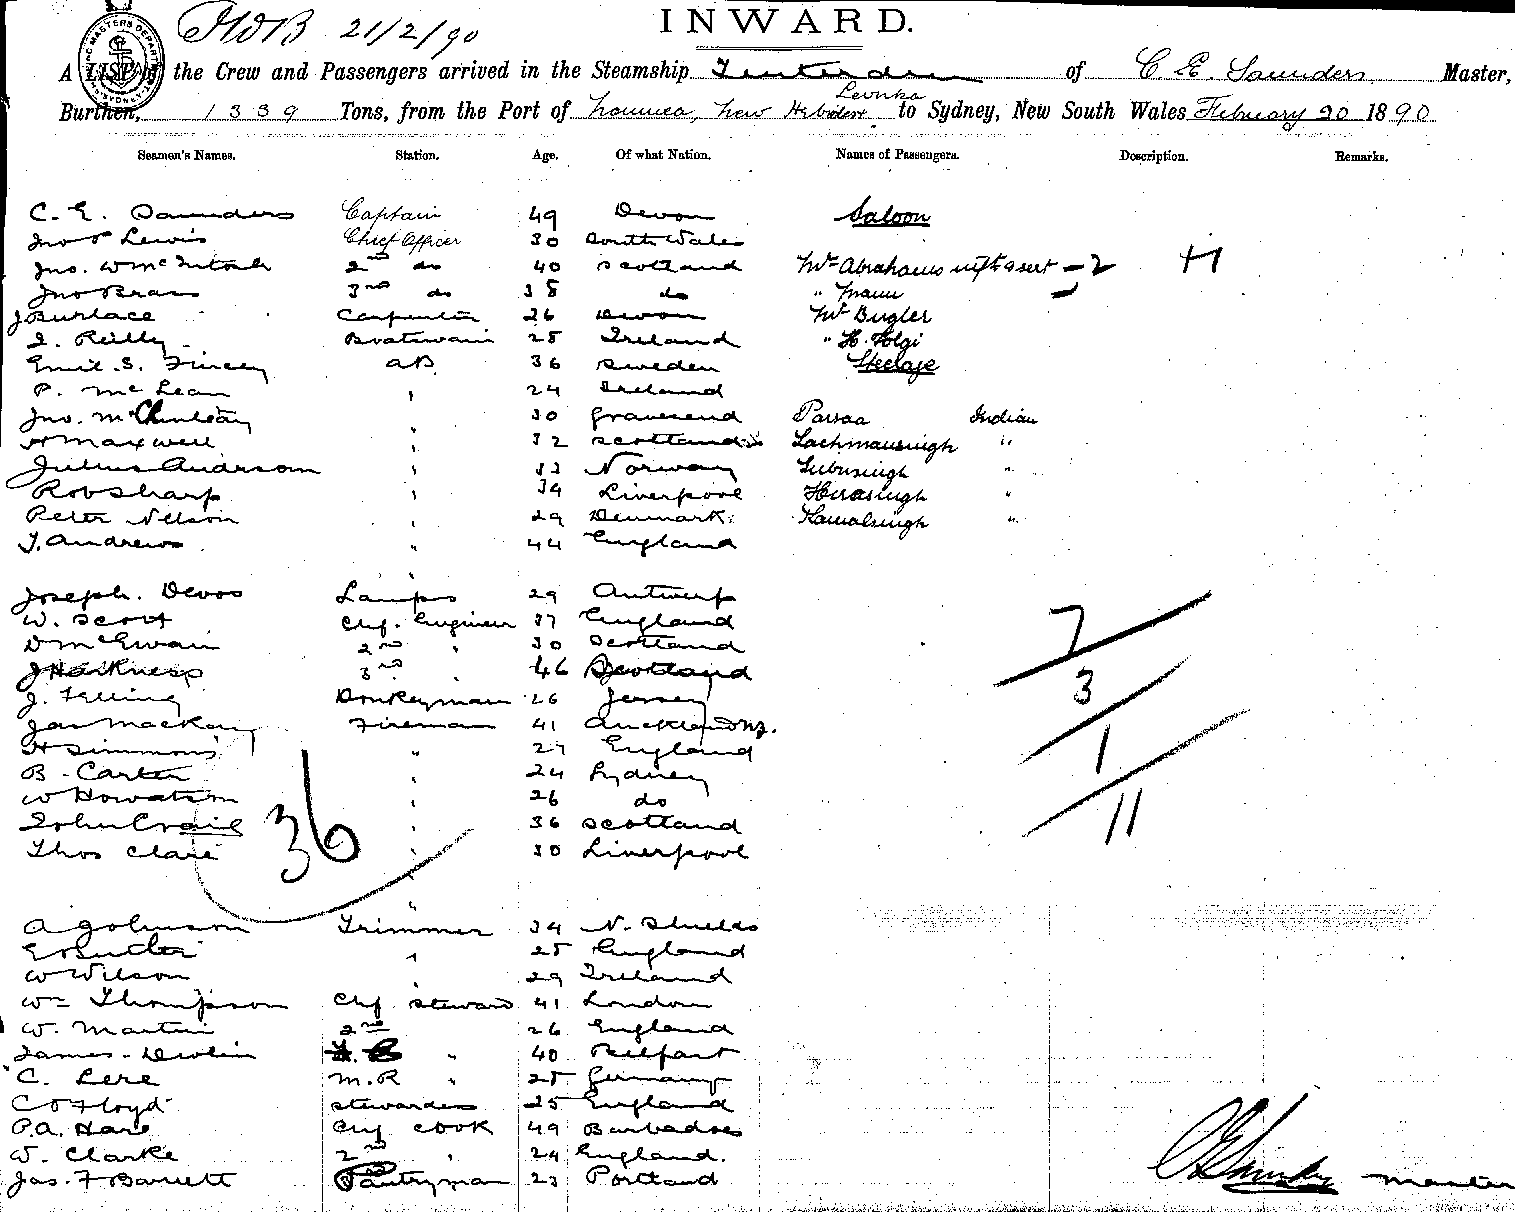 21/2/90
INWARD.
A LIST of the Crew and Passengers arrived in the Steamship Tenterden of C. E. Saunders Master,
Levuka
Burthen, 1339 Tons, from the Port of Noumea, New Hebrides to Sydney, New South Wales February 20 1890
Seamen's Names. Station. Age. Of what Nation. Names of Passengers. Description. Remarks.
C. E. Saunders Captain 49 Devon Saloon
Jno Lewis Chief Officer 30 South Wales
Jno. W McIntosh 2nd do 40 Scotland Mr Abrahams - 2 H
Jno Brass 3rd do 38 do " Mann
J Burlace Carpenter 26 Devon Mr Bugler
J. Reilly Boatswain 28 Ireland " H.
Emil S. AB 36 Sweden Steerage
P. McLean " 24 Ireland
Jno. " 30 Gravesend Parsaa Indian
H Maxwell " 32 Scotland Lachmansingh "
Julius Anderson " 33 Norway Subusingh "
Rob Sharp " 34 Liverpool Hirasingh "
Peter Nelson " 29 Denmark Kawalsingh "
T. Andrews " 44 England
Joseph. Devos Lamps 29 Antwerp
W. Scott Chf. Engineer 37 England 7
D McEwan 2nd " 30 Scotland
J Harkness 3rd 46 Scotland 3
J. Donkeyman 26 Jersey
Jas Mackay Fireman 41 Auckland NZ. 1
H Simmons " 27 England
B. Carter " 24 Sydney
W Howatson " 26 do 11
John Craig " 36 Scotland
Thos Clare " 30 Liverpool
36
A Johnson Trimmer 34 N. Shields
E Butler " 25 England
W Wilson " 29 Ireland
Wm Thompson Chf Steward 41 London
W. Martin 2nd 26 England
James Devlin " 40 Belfast
C. Lere M.R " 25 Germany
C Floyd Stewardess 25 England
P.A. Hare Chf Cook 49 Barbadoes
W. Clarke 2nd " 24 England.
Jas. F Barrett Pantryman 23 Portland
C E Saunders Master